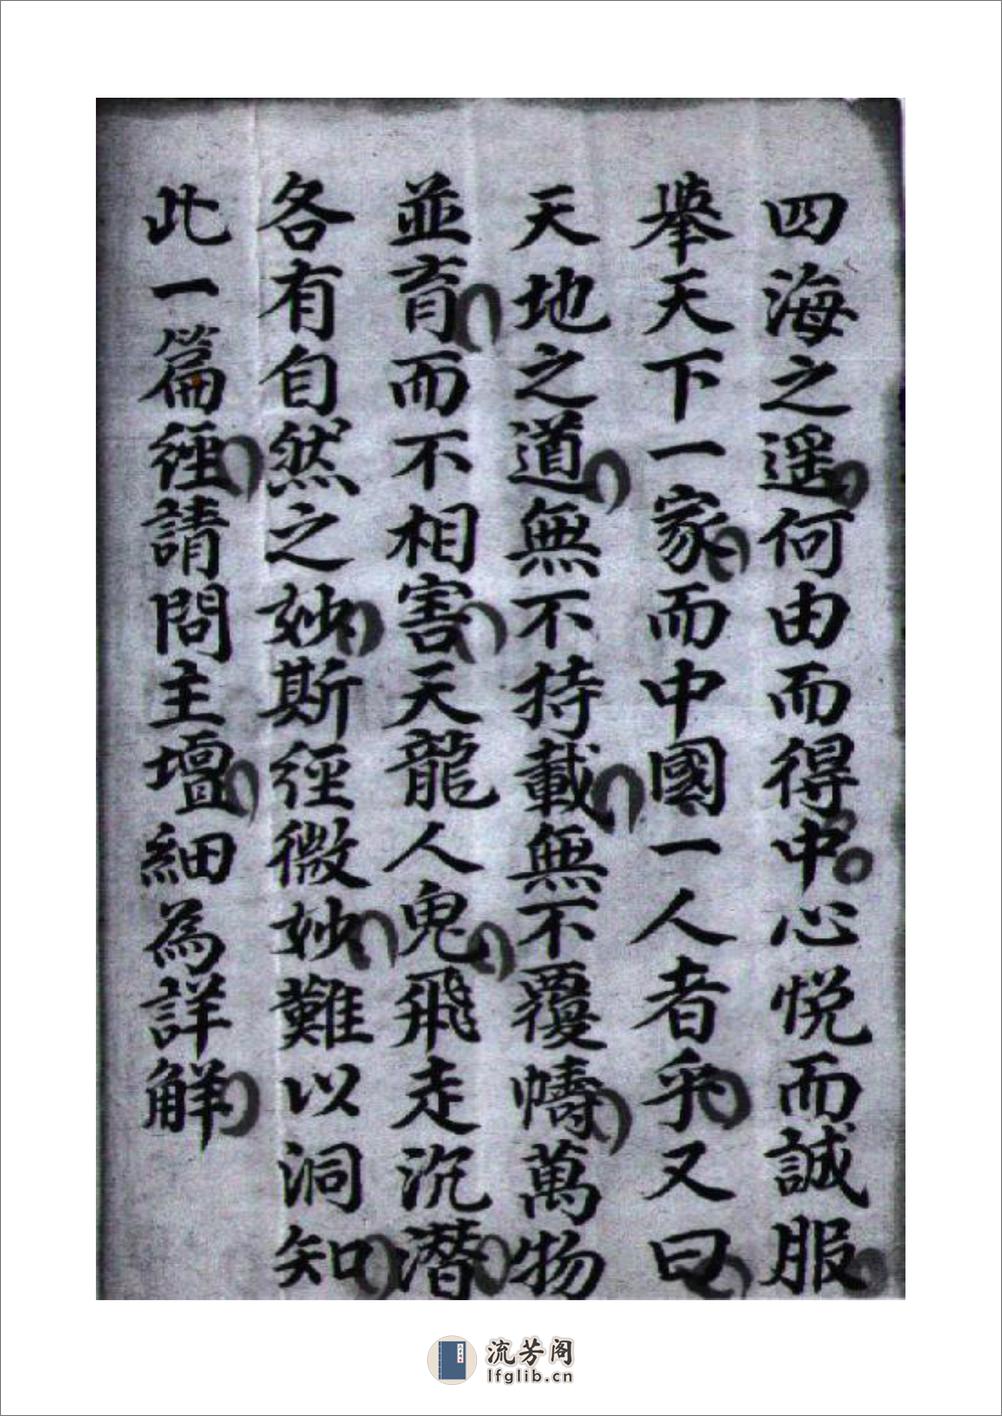 四海之遥何由而得中心悦而誠服
舉天下一家而中國一人者乎又曰
天地之道無不持載無不覆幬萬物
並育而不相害天龍人鬼飛走沉潛
各有自然之妙斯經微妙難以洞知
此一篇經請問主壇細為詳解
流芳阁
lfglib.cn